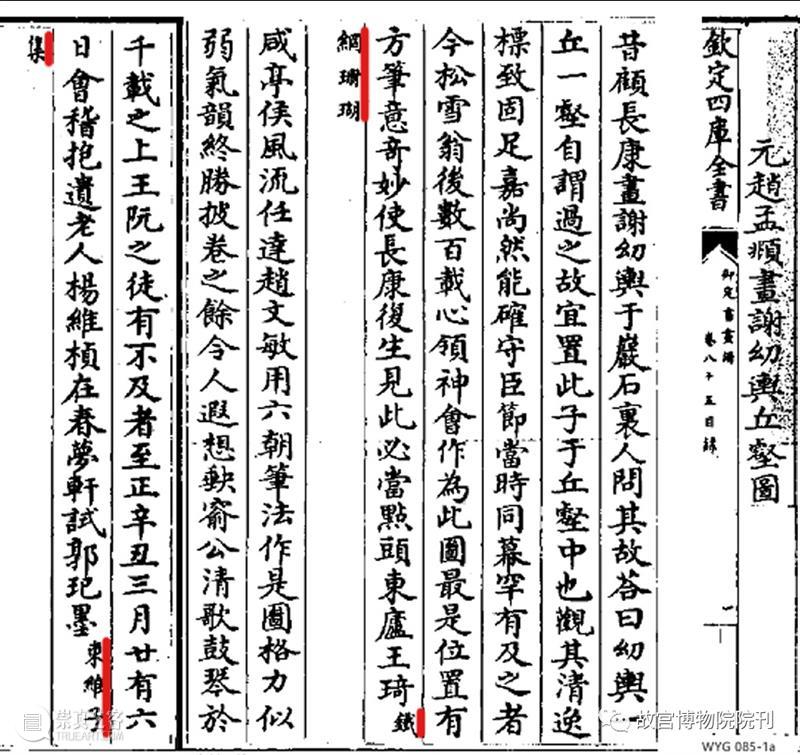 元趙孟頫畫謝幼輿丘壑圖
欽定四庫全書
御定書畫譜
卷八十五目錄
一
昔顧長康畫謝幼輿于巖石裏人問其故荅曰幼輿
丘一壑自謂過之故宜置此子于丘壑中也觀其清逸
標致固足嘉尚然能確守臣節當時同幕罕有及之者
今松雪翁後數百載心領神會作為此圖最是位置有
方筆意竒妙使長康復生見此必當點頭東廬王琦
鐵
網珊瑚
咸亭侯風流任達趙文敏用六朝筆法作是圖格力似
弱氣韻終勝披卷之餘令人遐想
公清歌鼓琴於
千載之上王阮之徒有不及者至正辛丑三月廿有六
日會稽抱遺老人楊維楨在春夢軒試郭玘墨
東維子
集
崇真藝客
TRUEART.COM
故宫博物院院刊
WYG 085-1a